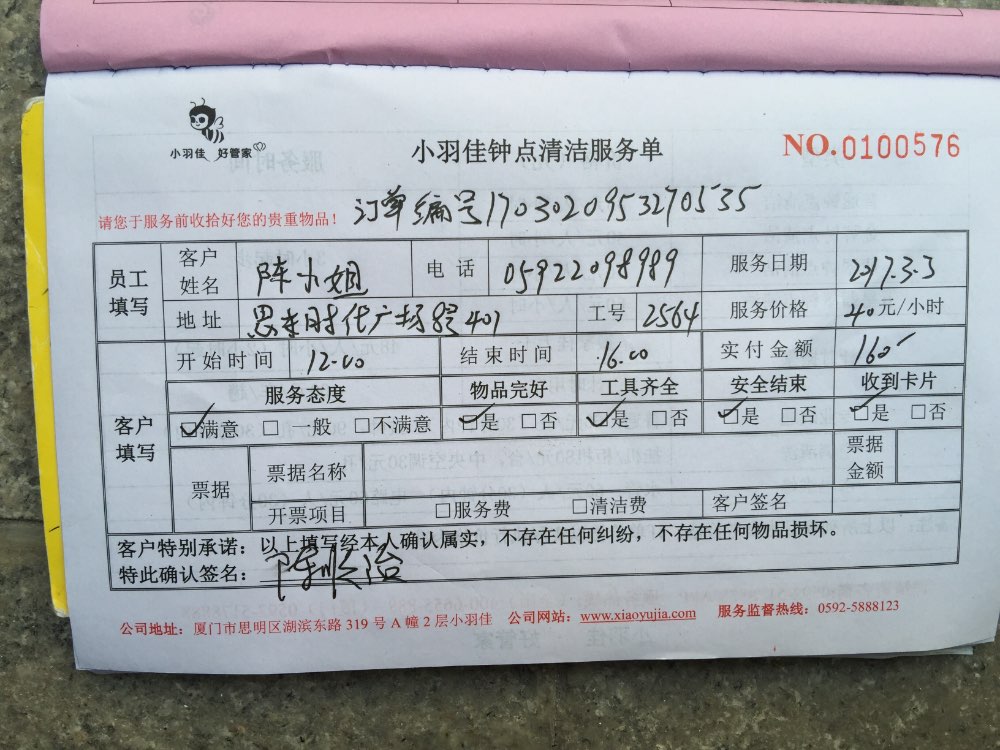 小羽佳 好管家
小羽佳钟点清洁服务单
NO.0100576
请您于服务前收拾好您的贵重物品！
订单编号1703020953270535
员工填写 客户姓名 陈小姐 电话 05922098989 服务日期 2017.3.3
地址 思来时代广场8号401 工号 2564 服务价格 40元/小时
客户填写 开始时间 12.00 结束时间 16.00 实付金额 160
服务态度 物品完好 工具齐全 安全结束 收到卡片
☑满意 □一般 □不满意 ☑是 □否 ☑是 □否 ☑是 □否 ☑是 □否
票据 票据名称 票据金额
开票项目 □服务费 □清洁费 客户签名
客户特别承诺：以上填写经本人确认属实，不存在任何纠纷，不存在任何物品损坏。
特此确认签名：陈顺治
公司地址：厦门市思明区湖滨东路 319 号 A 幢 2 层小羽佳 公司网站：www.xiaoyujia.com 服务监督热线：0592-5888123